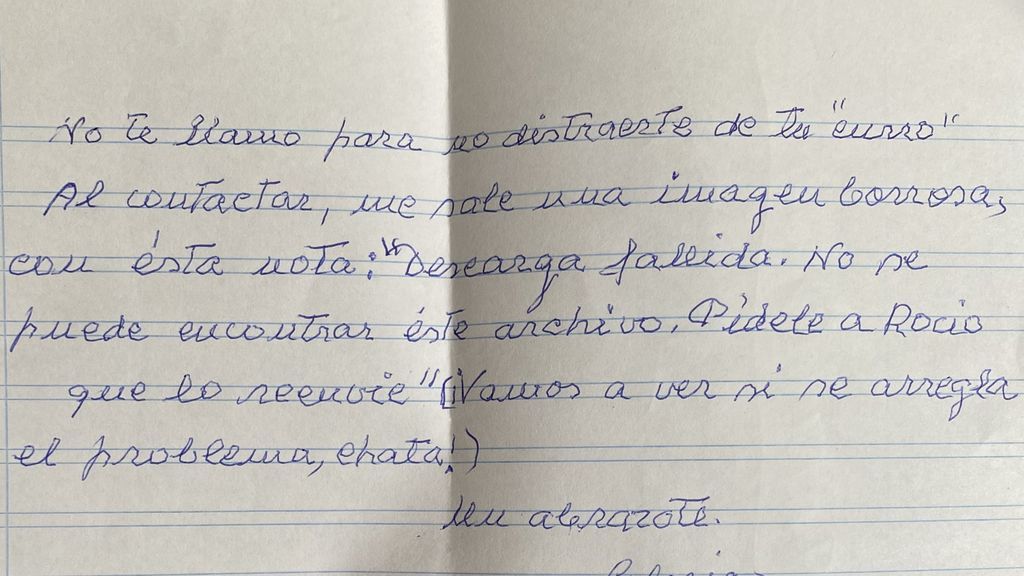 No te llamo para no distraerte de tu "curro"
Al contactar, me sale una imagen borrosa,
con ésta nota: "Descarga fallida. No se
puede encontrar éste archivo. Pídele a Rocio
que lo reenvie" (¡Vamos a ver si se arregla
el problema, chata!)
Un abrazote.